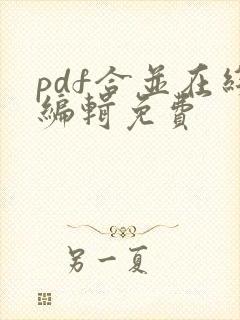 pdf合並在線
編輯免費
另一夏